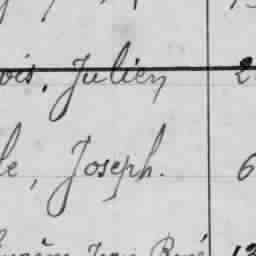 ois, Julien 2
le, Joseph. 6
Jean René 13